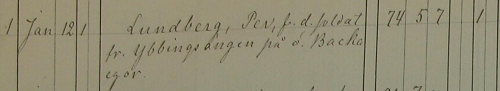 1 Jan 12 1 Lundberg, Per, f. d. soldat 74 5 7 1
fr. Ybbingsängen på S. Backa
egor.